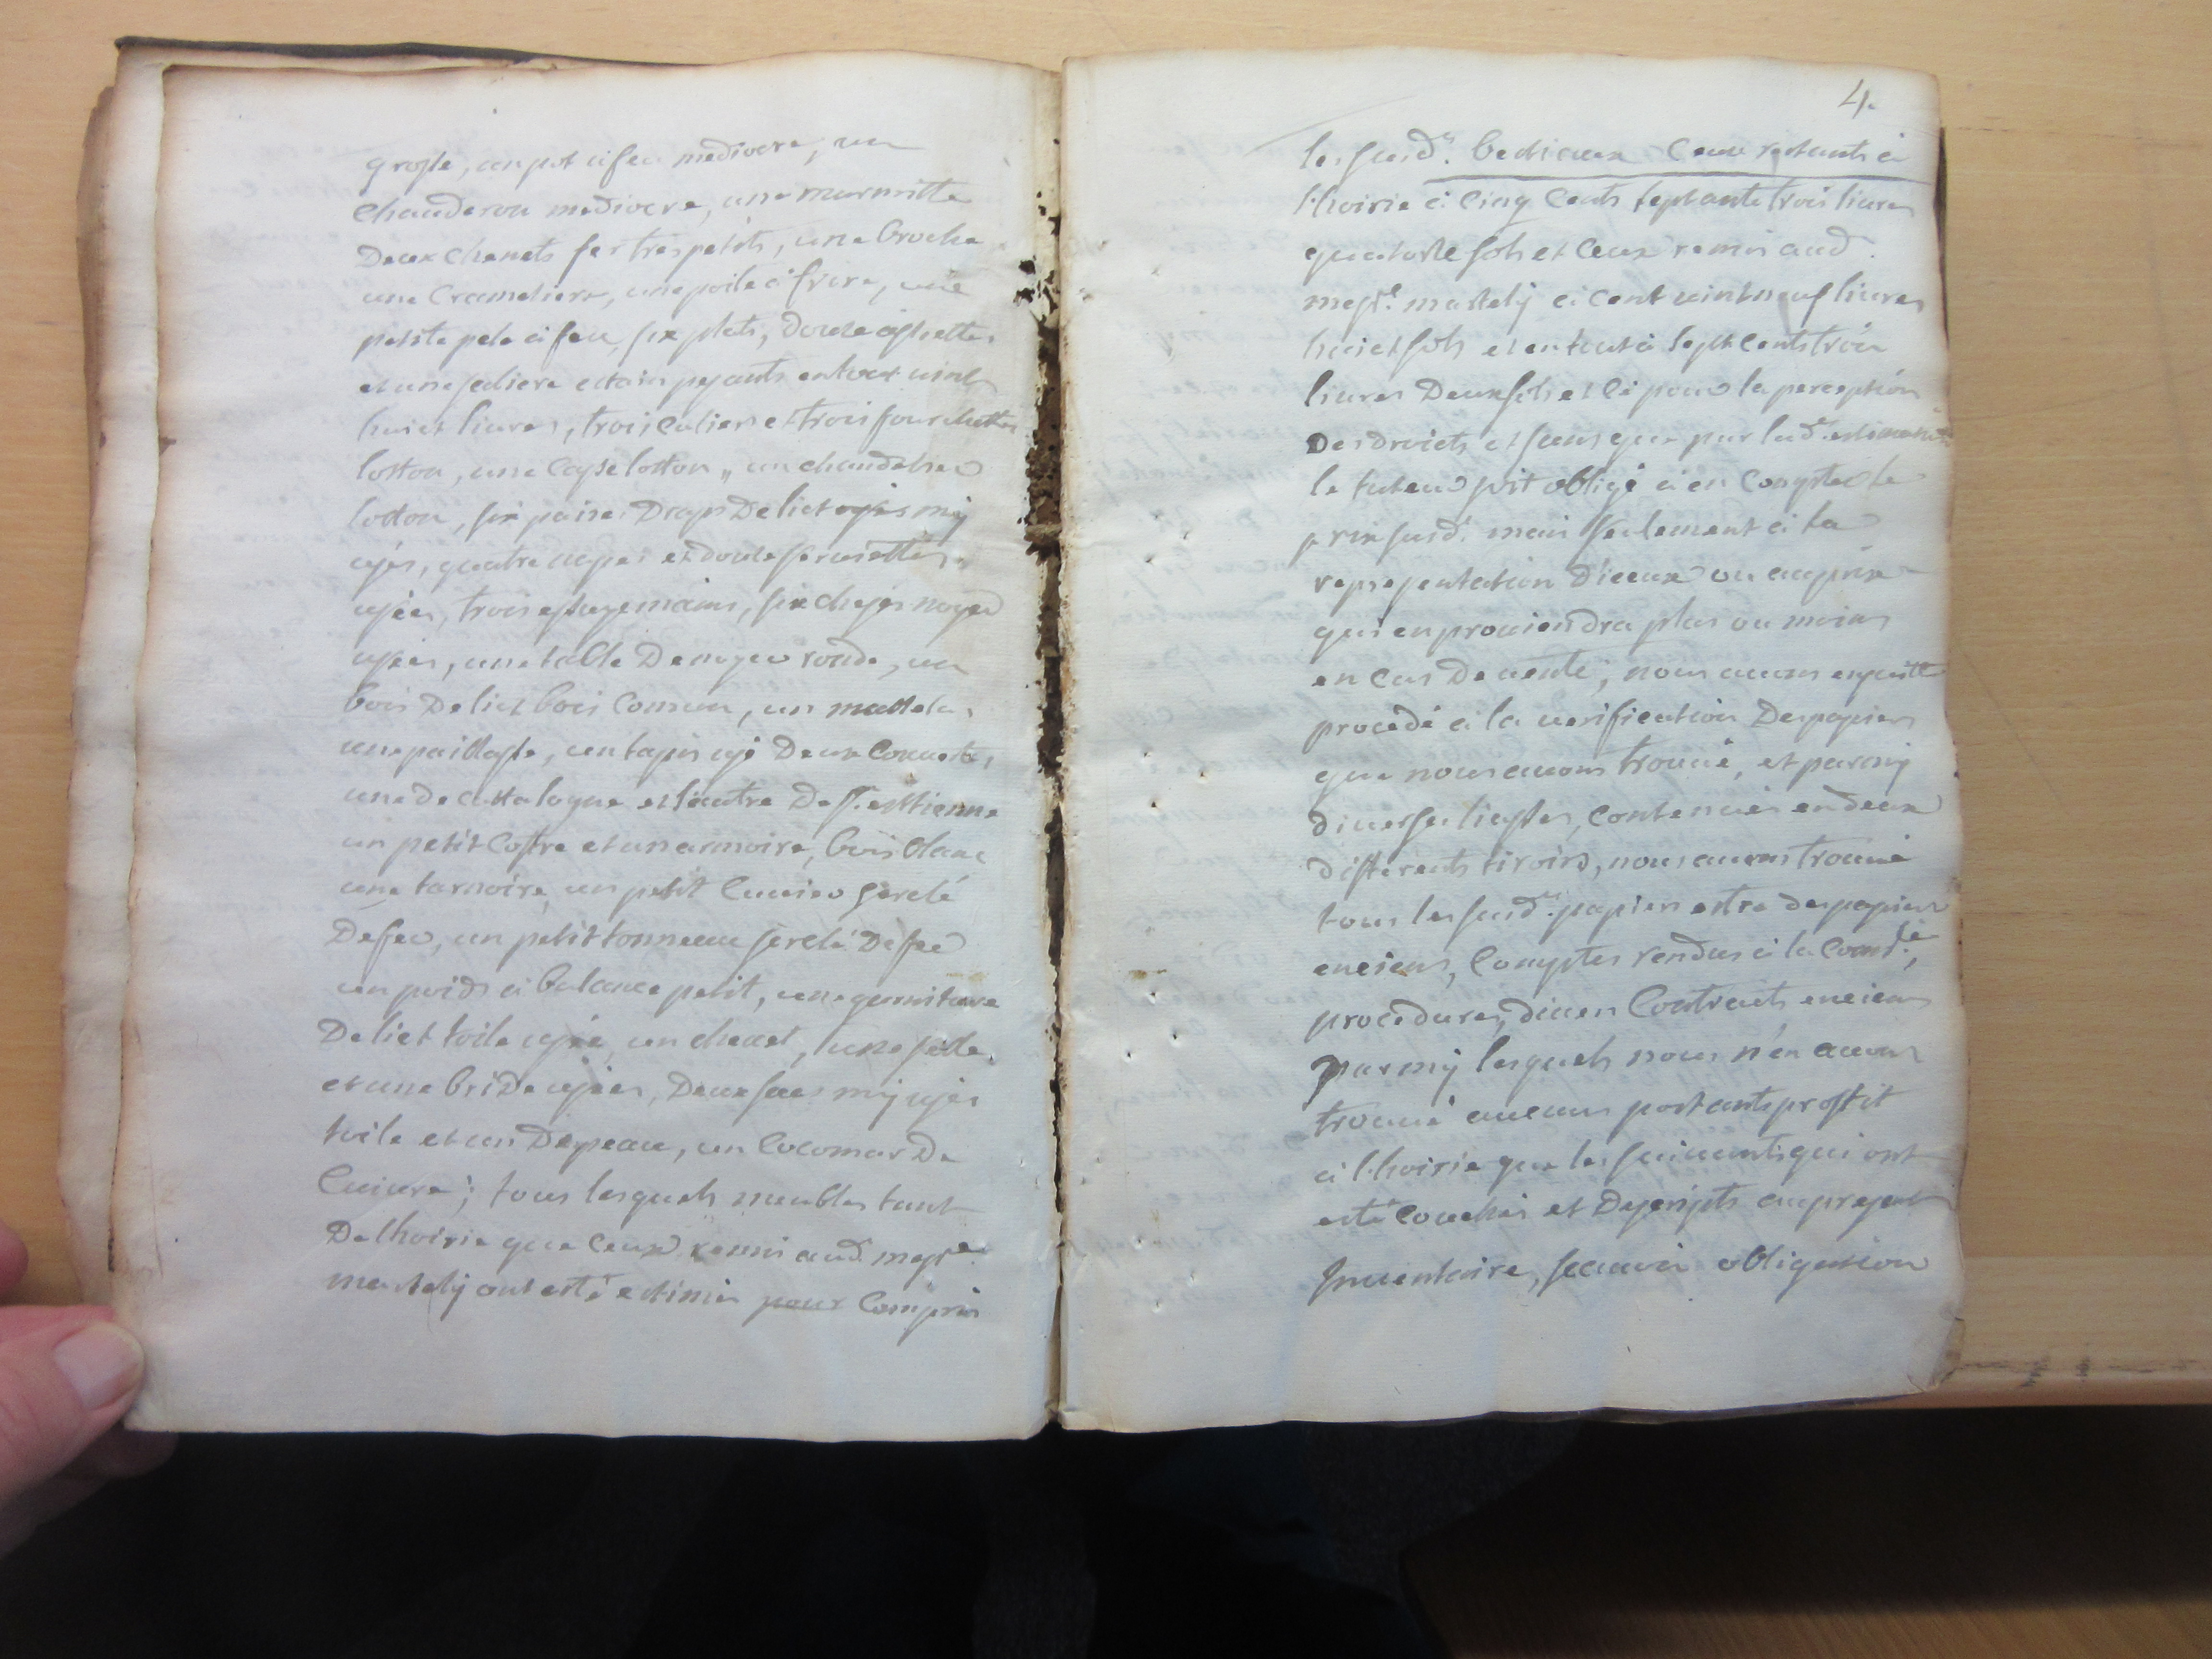 grosse, un pot a feu mediocre, un
chauderon mediocre, une marmitte
Deux chenets fer tres petits, une broche
une Cramaliere, une poile a frire, une
petite pele a feu, six plats, douze assiettes
et une saliere estain pesants en tout vint
huict livres, trois culiers et trois fourchettes
lotton, une casse lotton, un chandelier
lotton, six paires Draps De lict mij
usés, quatre napes et douze serviettes
usées, trois essuyemains, six cheses noyer
usées, une table De noyer ronde, un
bois De lict bois Comun, un mattelas
une paillasse, un tapis usé Deux Couvertes,
une de cattalogne et l'autre De St. esttienne
un petit Coffre et une armoire, bois blanc
une tarnoire un petit Cuvier serclé
De fer, un petit tonneau serclé De fer
un poids a balance petit, une garniture
De lict toile usée, un chevet, une selle
et une bride usées, Deux sacs mij usés
toile et un De peau, un Cocomar De
Cuivre; tous lesquels meubles tant
De lhoirie que ceux remis aud. mess.e
martelij ont esté estimés pour Compris
4.
les susd.s bestiaux Ceux restants a
l'hoirie a Cinq Cents septante trois livres
quatorze sols et Ceux remis aud.
mess.e martelij a cent vint neuf livres
huict sols et en tout a sept Cents trois
livres Deux sols et Ce pour la perception
Des droicts et sans que par lad.
le tuteur soit obligé a en Compter le
prix susd. mais seulement a la
representation D'iceux ou au prix
qui en proviendra plus ou moins
en Cas De vente; nous avons ensuitte
procedé a la verification Des papiers
que nous avons trouvé, et parmij
diverses liasses, contenues en deux
differents tiroirs, nous avons trouvé
tous les susd.s papiers estre des papiers
enciens, Comptes rendus a la Com.té,
procedures, divers Contracts enciens
parmij lesquels nous n'en avons
trouvé aucuns portants proffit
a l'hoirie que les suivants qui ont
esté Couchés et Descripts au present
Inventaire, scavoir obligation